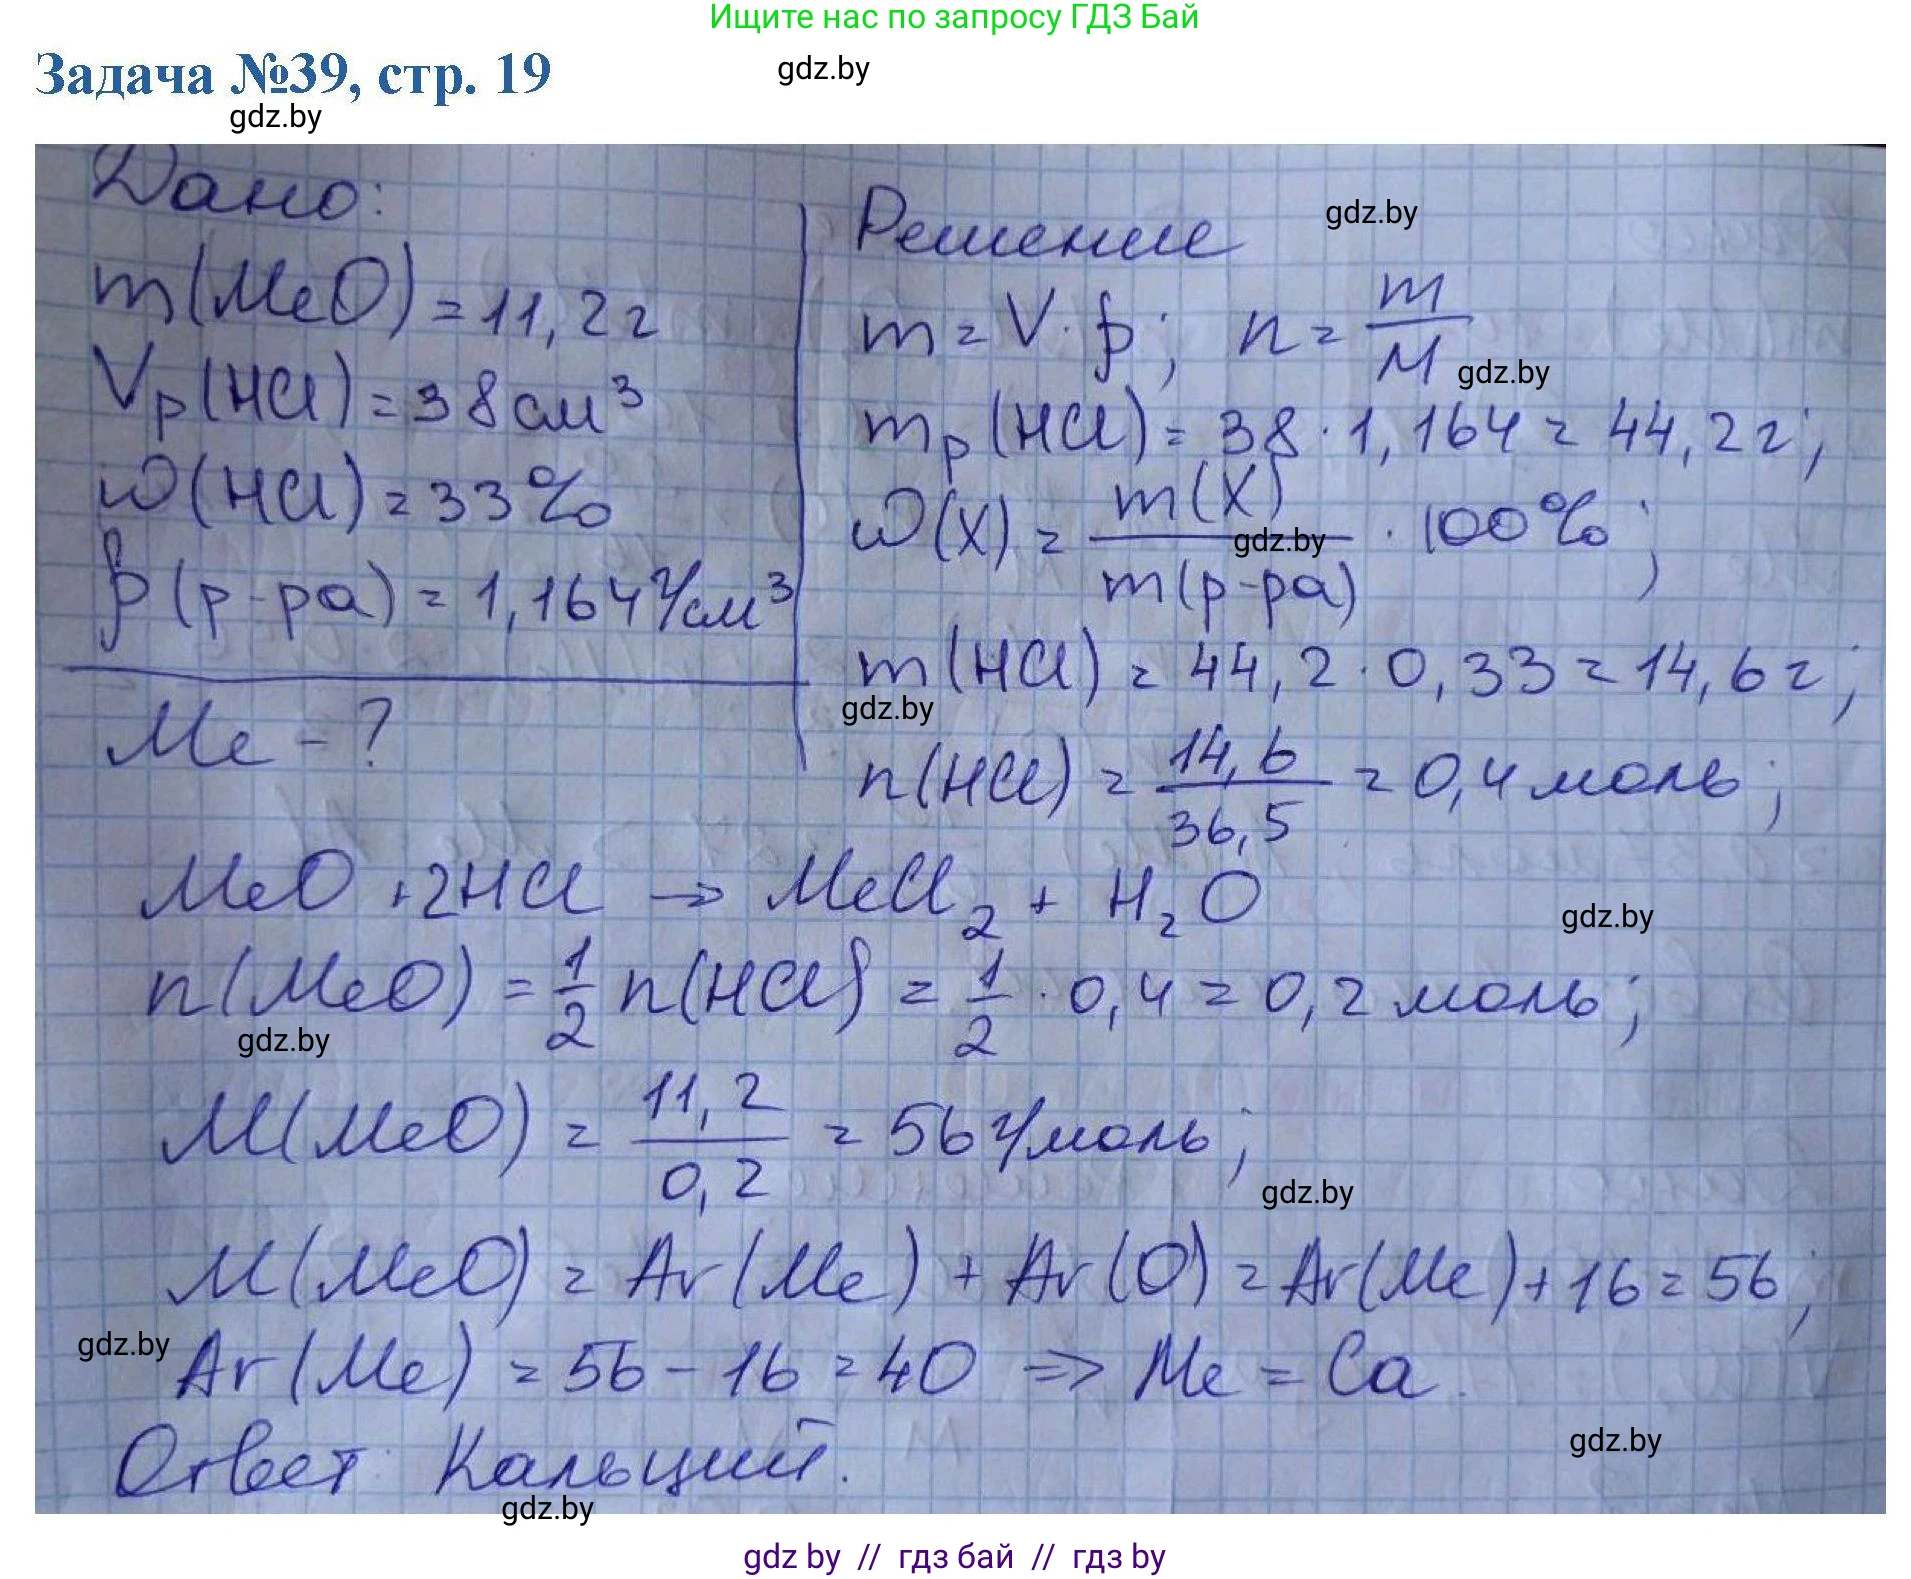 Ищите нас по запросу ГДЗ Бай
Задача №39, стр. 19
gdz.by
gdz.by
Дано:
m(MeO) = 11,2 г
Vр(HCl) = 38 см³
ω(HCl) = 33%
ρ(р-ра) = 1,164 г/см³
Me - ?
Решение
gdz.by
m = V · ρ; n = m/M
gdz.by
mр(HCl) = 38 · 1,164 = 44,2 г;
ω(X) = m(X)/m(р-ра) · 100%;
gdz.by
m(HCl) = 44,2 · 0,33 = 14,6 г;
gdz.by
n(HCl) = 14,6/36,5 = 0,4 моль;
MeO + 2HCl → MeCl₂ + H₂O
gdz.by
n(MeO) = 1/2 n(HCl) = 1/2 · 0,4 = 0,2 моль;
gdz.by
M(MeO) = 11,2/0,2 = 56 г/моль;
gdz.by
M(MeO) = Ar(Me) + Ar(O) = Ar(Me) + 16 = 56;
gdz.by
Ar(Me) = 56 - 16 = 40 => Me = Ca.
gdz.by
Ответ: Кальций.
gdz.by
gdz by // гдз бай // гдз by